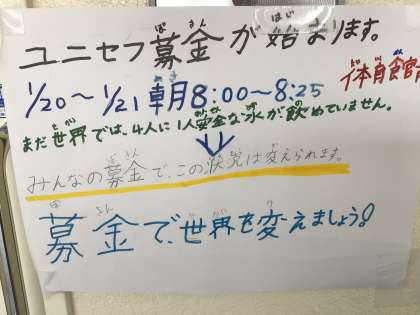 ユニセフ募金が始まります。
1/20〜1/21 朝8:00〜8:25
体育館前
まだ世界では、4人に1人安全な水が飲めていません。
みんなの募金で、この状況は変えられます。
募金で、世界を変えましょう!